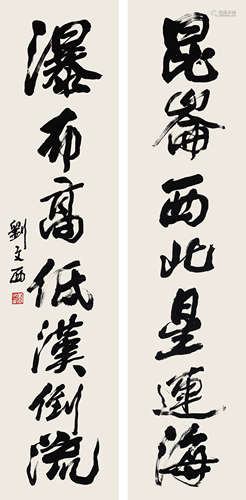 昆崙西北星連海
瀑布高低漢倒流
劉文西